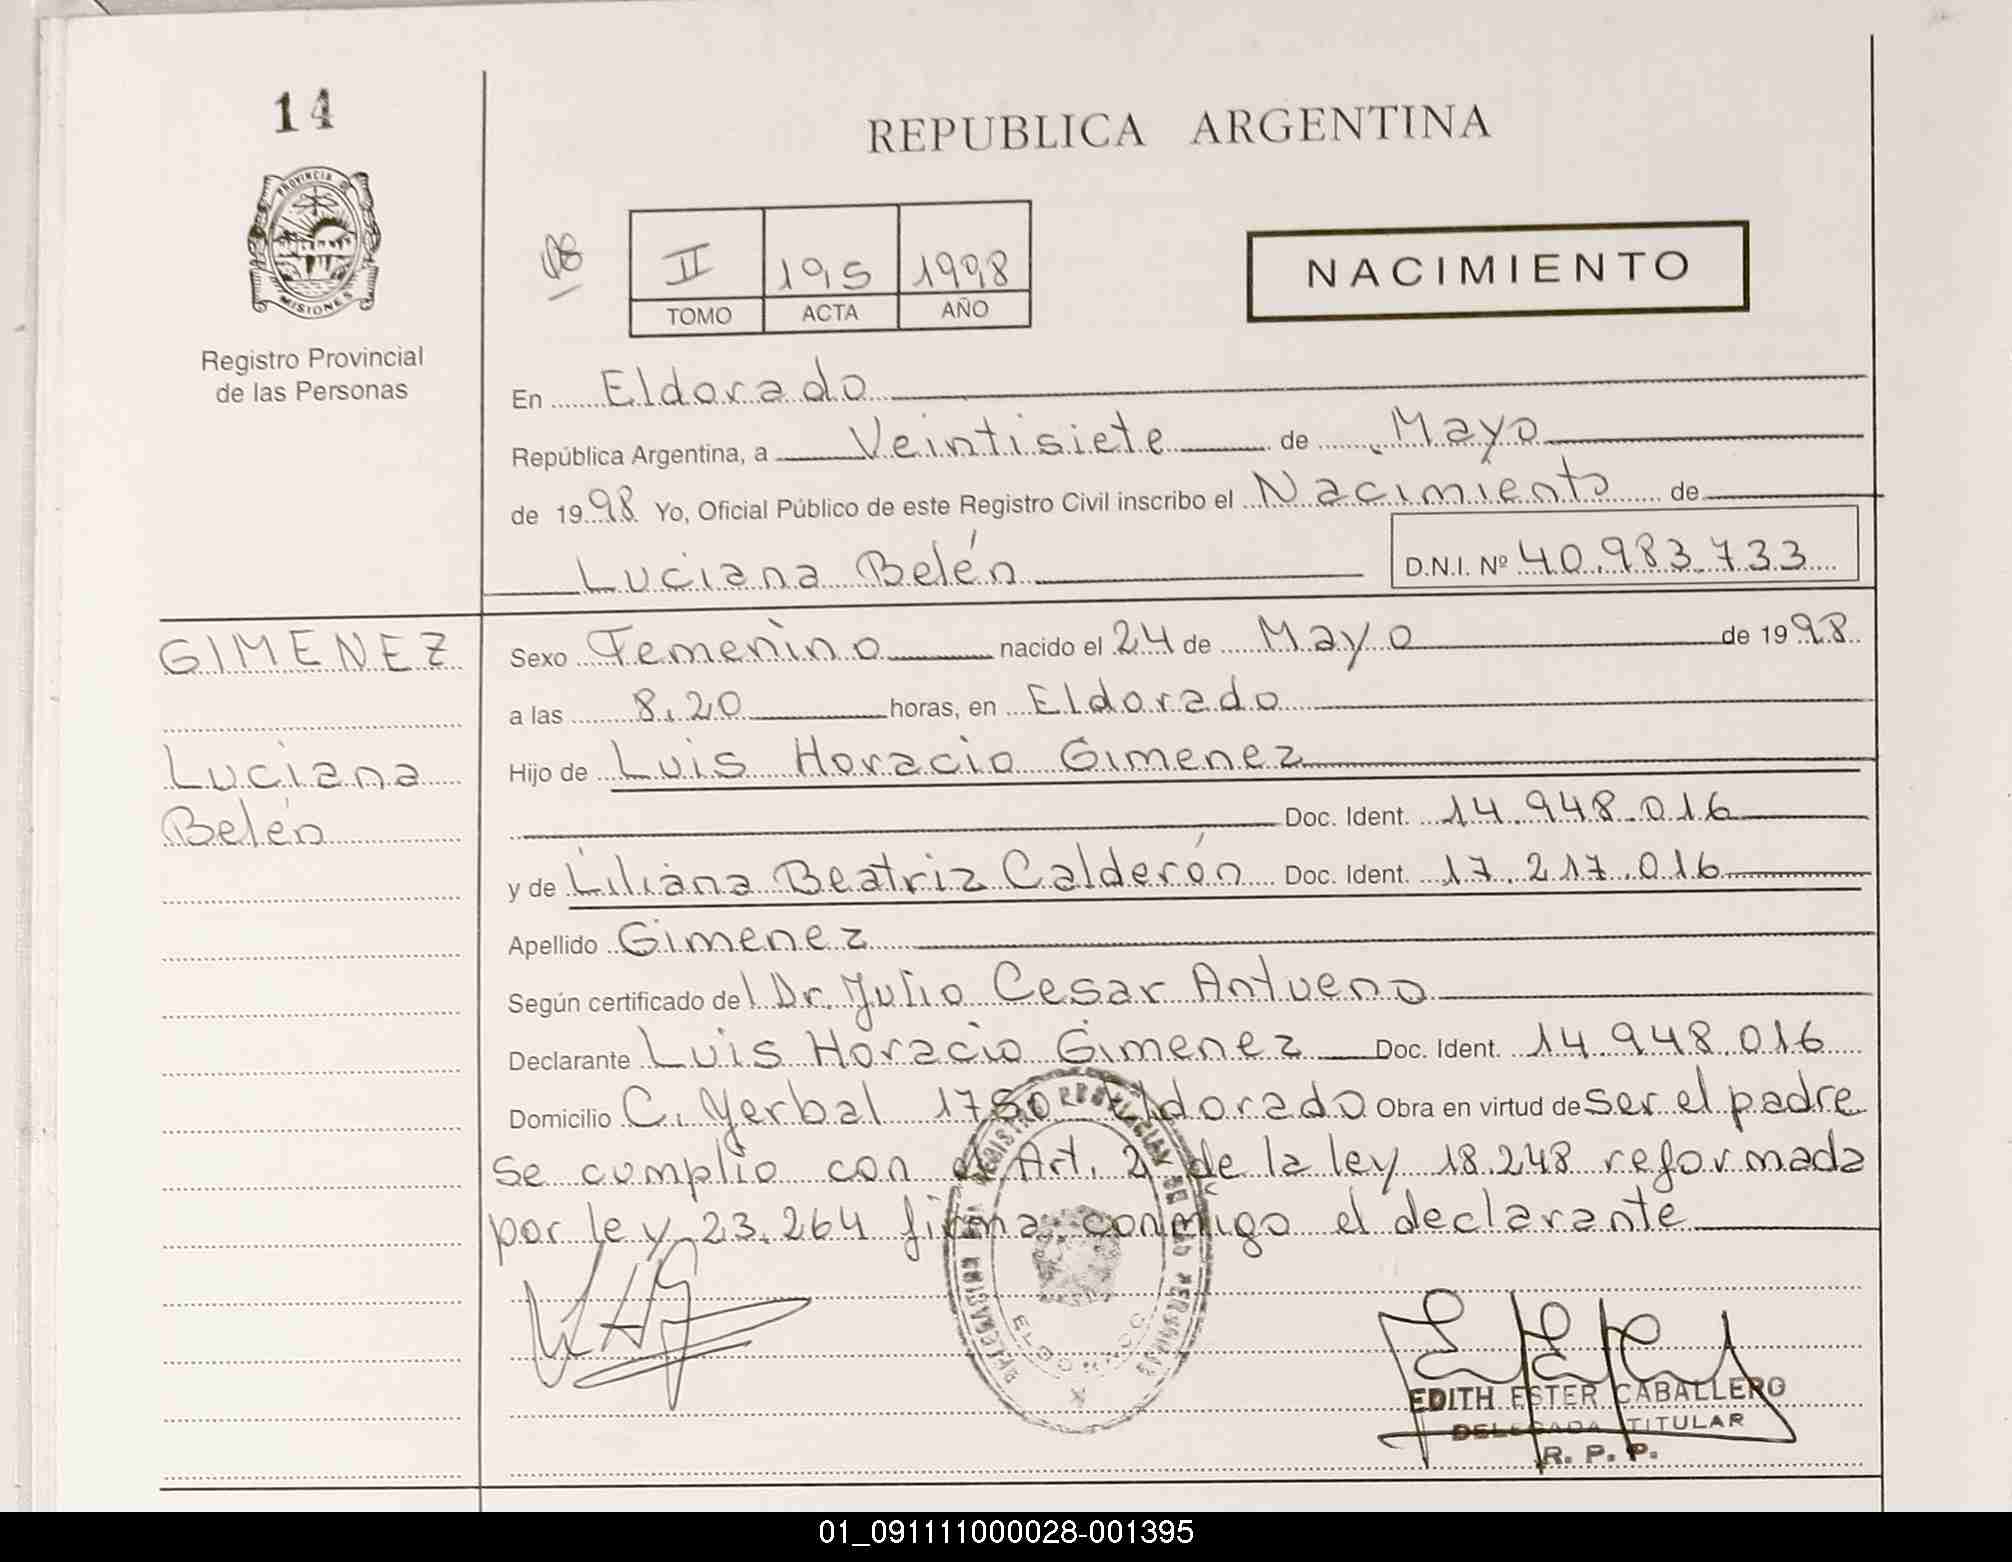 14
REPUBLICA ARGENTINA
PROVINCIA DE
MISIONES
Registro Provincial
de las Personas
08
II 195 1998
TOMO ACTA AÑO
NACIMIENTO
En Eldorado
República Argentina, a Veintisiete de Mayo
de 1998 Yo, Oficial Público de este Registro Civil inscribo el Nacimiento de
Luciana Belén D.N.I. Nº 40.983.733
GIMENEZ
Luciana
Belén
Sexo Femenino nacido el 24 de Mayo de 1998
a las 8.20 horas, en Eldorado
Hijo de Luis Horacio Gimenez
Doc. Ident. 14.948.016
y de Liliana Beatriz Calderón Doc. Ident. 17.217.016
Apellido Gimenez
Según certificado del Dr. Julio Cesar Antueno
Declarante Luis Horacio Gimenez Doc. Ident. 14.948.016
Domicilio C. Yerbal 1780 Eldorado Obra en virtud de ser el padre
se cumplio con el Art. 2 de la ley 18.248 reformada
por ley 23.264 firma conmigo el declarante
REGISTRO PROVINCIAL DE LAS PERSONAS
ELDORADO
EDITH ESTER CABALLERO
DELEGADA TITULAR
R. P. P.
01_091111000028-001395